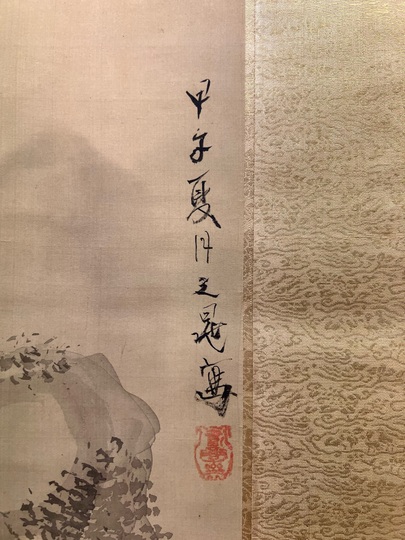 甲午夏月文晁寫